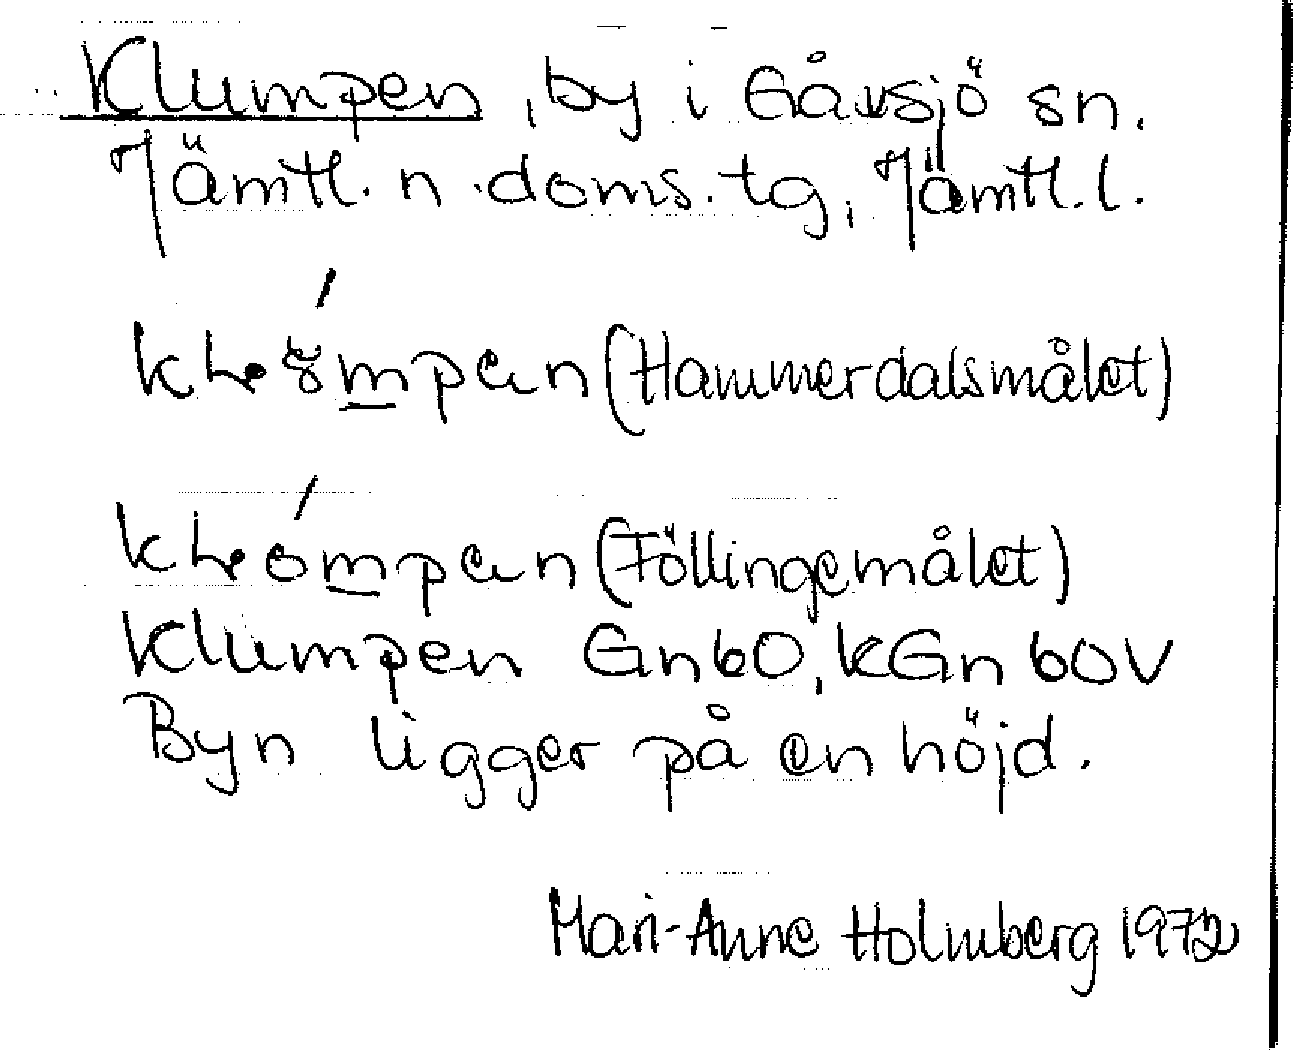 Klumpen, by i Gåxsjö sn.
Jämtl. n. doms. tg, Jämtl. l.
(Hammerdalsmålet)
(Föllingemålet)
Klumpen Gn60, kGn 60V
Byn ligger på en höjd.
Mari-Anne Holmberg 1972